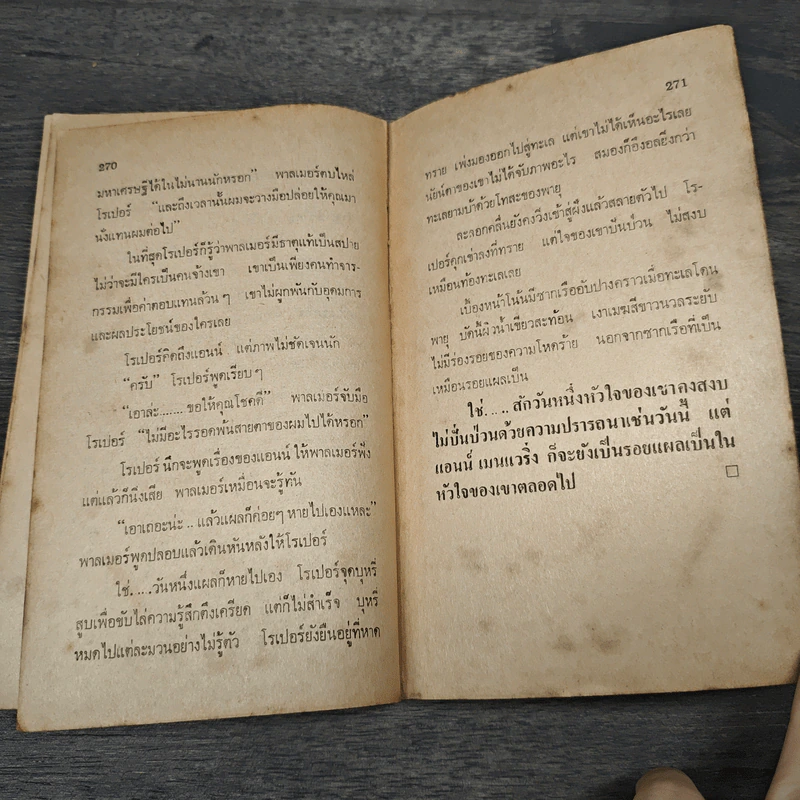 270
มหาเศรษฐีได้ในไม่นานนักหรอก” พาลเมอร์ตบไหล่
โรเปอร์ “และถึงเวลานั้นผมจะวางมือปล่อยให้คุณมา
นั่งแทนผมต่อไป”
ในที่สุดโรเปอร์ก็รู้ว่าพาลเมอร์มีธาตุแท้เป็นสปาย
ไม่ว่าจะมีใครเป็นคนจ้างเขา เขาเป็นเพียงคนทำจาร-
กรรมเพื่อค่าตอบแทนล้วนๆ เขาไม่ผูกพันกับอุดมการ
และผลประโยชน์ของใครเลย
โรเปอร์คิดถึงแอนน์ แต่ภาพไม่ชัดเจนนัก
“ครับ” โรเปอร์พูดเรียบๆ
“เอาล่ะ........ขอให้คุณโชคดี” พาลเมอร์จับมือ
โรเปอร์ “ไม่มีอะไรรอดพ้นสายตาของผมไปได้หรอก”
โรเปอร์ นึกจะพูดเรื่องของแอนน์ ให้พาลเมอร์ฟัง
แต่แล้วก็นิ่งเสีย พาลเมอร์เหมือนจะรู้ทัน
“เอาเถอะน่ะ .. แล้วแผลก็ค่อยๆ หายไปเองแหละ”
พาลเมอร์พูดปลอบแล้วเดินหันหลังให้โรเปอร์
ใช่.....วันหนึ่งแผลก็หายไปเอง โรเปอร์จุดบุหรี่
สูบเพื่อขับไล่ความรู้สึกตึงเครียด แต่ก็ไม่สำเร็จ บุหรี่
หมดไปแต่ละมวนอย่างไม่รู้ตัว โรเปอร์ยังยืนอยู่ที่หาด
271
ทราย เพ่งมองออกไปสู่ทะเล แต่เขาไม่ได้เห็นอะไรเลย
นัยน์ตาของเขาไม่ได้จับภาพอะไร สมองก็อึงอลยิ่งกว่า
ทะเลยามบ้าด้วยโทสะของพายุ
ละลอกคลื่นยังคงวิ่งเข้าสู่ฝั่งแล้วสลายตัวไป โร-
เปอร์คุกเข่าลงที่ทราย แต่ใจของเขาปั่นป่วน ไม่สงบ
เหมือนท้องทะเลเลย
เบื้องหน้าโน้นมีซากเรืออับปางคราวเมื่อทะเลโดน
พายุ บัดนี้ผิวน้ำเขียวสะท้อน เงาเมฆสีขาวนวลระยับ
ไม่มีร่องรอยของความโหดร้าย นอกจากซากเรือที่เป็น
เหมือนรอยแผลเป็น
ใช่..... สักวันหนึ่งหัวใจของเขาคงสงบ
ไม่ปั่นป่วนด้วยความปรารถนาเช่นวันนี้ แต่
แอนน์ เมนแวริ่ง ก็จะยังเป็นรอยแผลเป็นใน
หัวใจของเขาตลอดไป